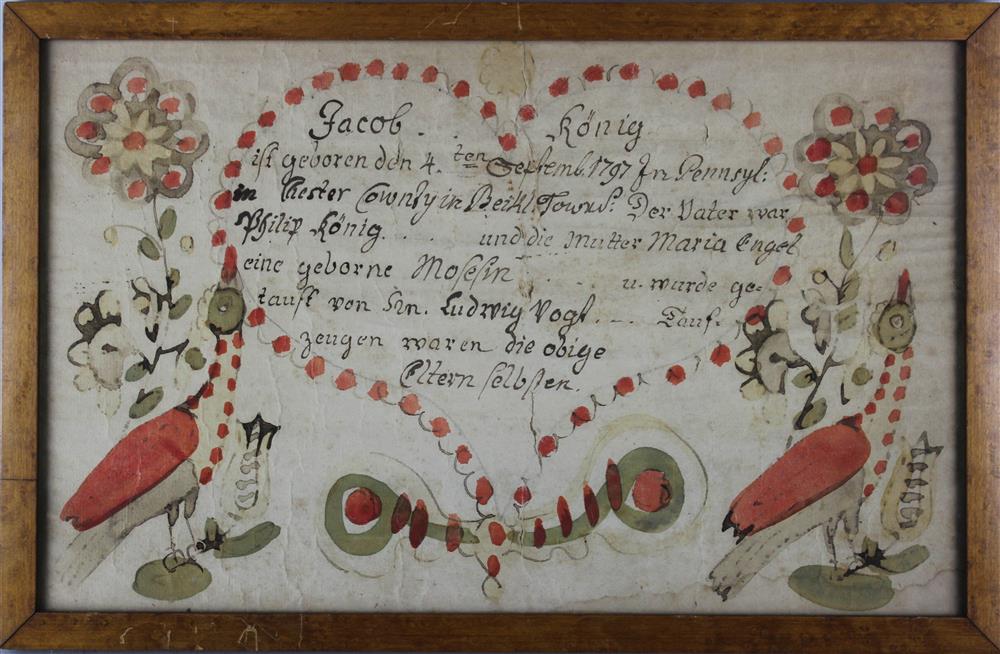 Jacob . . König
ist geboren den 4. ten Septemb. 1797 In Pennsyl:
in Chester Cownty in Beikl. Towns: Der Vater war
Philip König . . . und die Mutter Maria Engel
eine geborne Mosesin . . . . u. wurde ge-
tauft von Hn. Ludwig Vogt. . — Tauf-
zeugen waren die obige
Eltern selbsten.